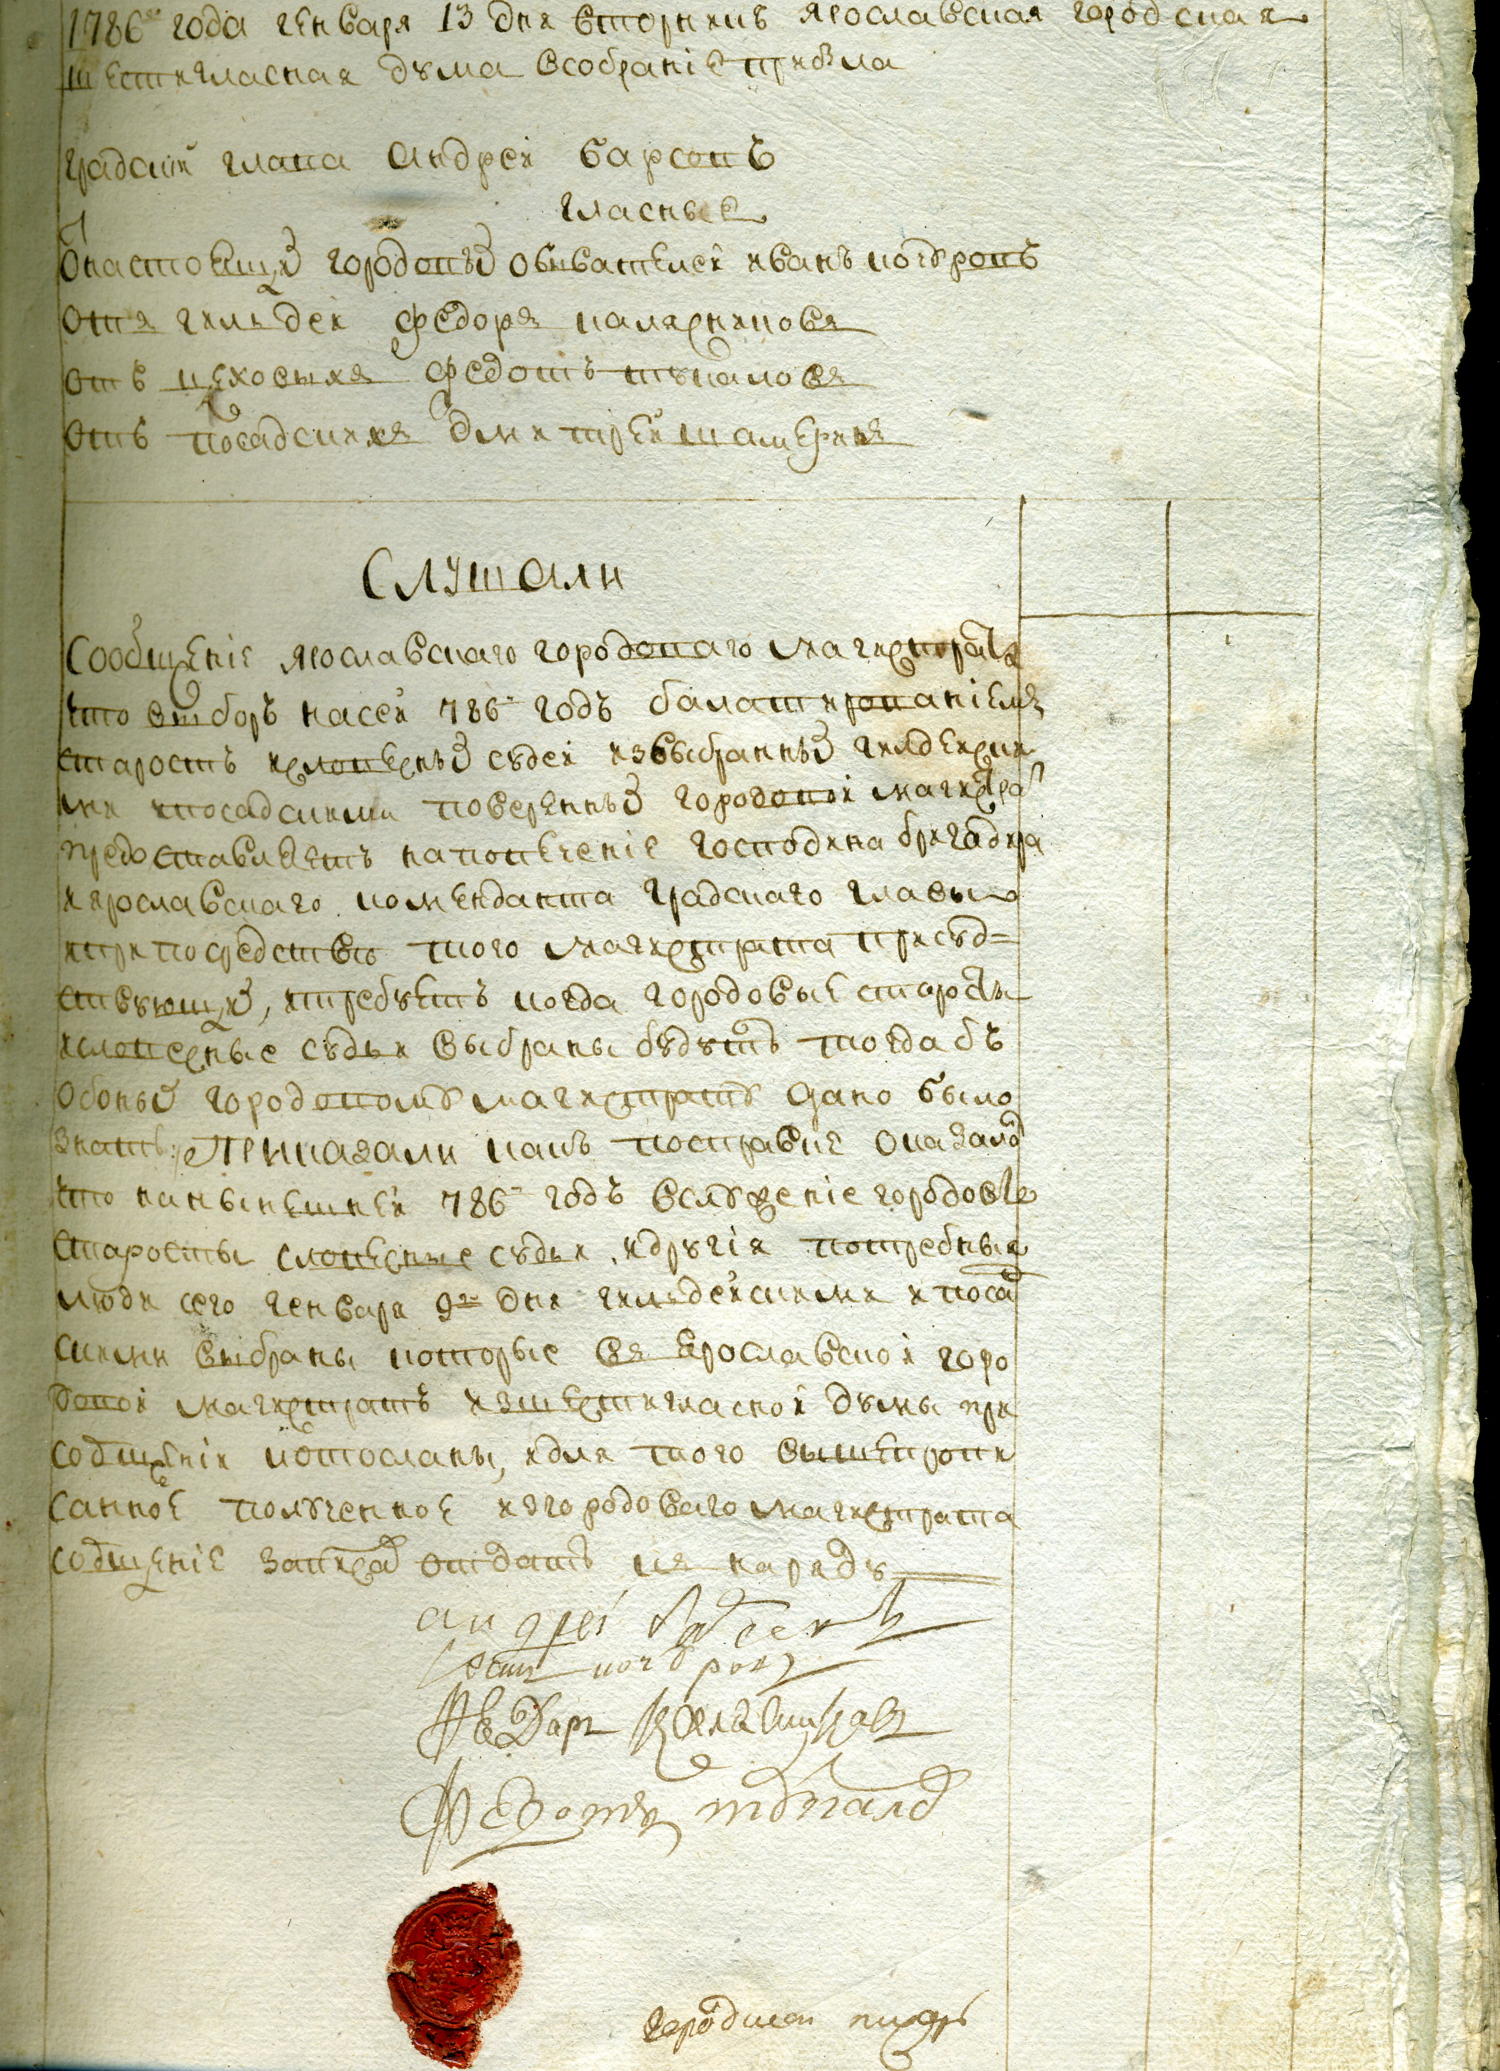 1786 года генваря 13 дня вторникъ ярославская городская
шестигласная дума всобраніе прибыла
градскии глава Андреи Барсовъ
гласные
От настоящих городовых обывателеи иванъ кочуровъ
Отъ гильдеи федоръ калашниковъ
Отъ цеховыхъ федотъ тыкаловъ
Отъ посадскихъ дмитреи
Слушали
Сообщеніе ярославского городоваго магистрата
что выборъ насеи 786 годъ балатированіемъ
старостъ исловесных судеи извыбранных гильдеиски
ми ипосадскими поверенных городовои магистрат
предоставляетъ напопеченіе господина бригадира
иярославскаго коменданта градскаго главы
ипри посредстве того магистрата присуд=
ствующих, итребуетъ когда городовые старосты
исловесные судьи выбраны будутъ тогда бъ
Обоных городовому магистрату дано было
знать: Приказали какъ посправке Оказалос
что нанынешнеи 786 годъ вслуженіе городовые
старосты словесные судьи, идругія потребныя
люди сего генваря 9го дня гильдеискими и посад
скими выбраны которые въ Ярославскои горо
довои магистратъ изшестигласнои думы при
собщеніи иотосланы, идля того вышепропи
санное полученное изгородоваго магистрата
собщеніе записав отдать къ наряду
андреі барсовъ
Иванъ кочуровъ
Федоръ Калашниковъ
Федотъ тыкалов
городскои писарь